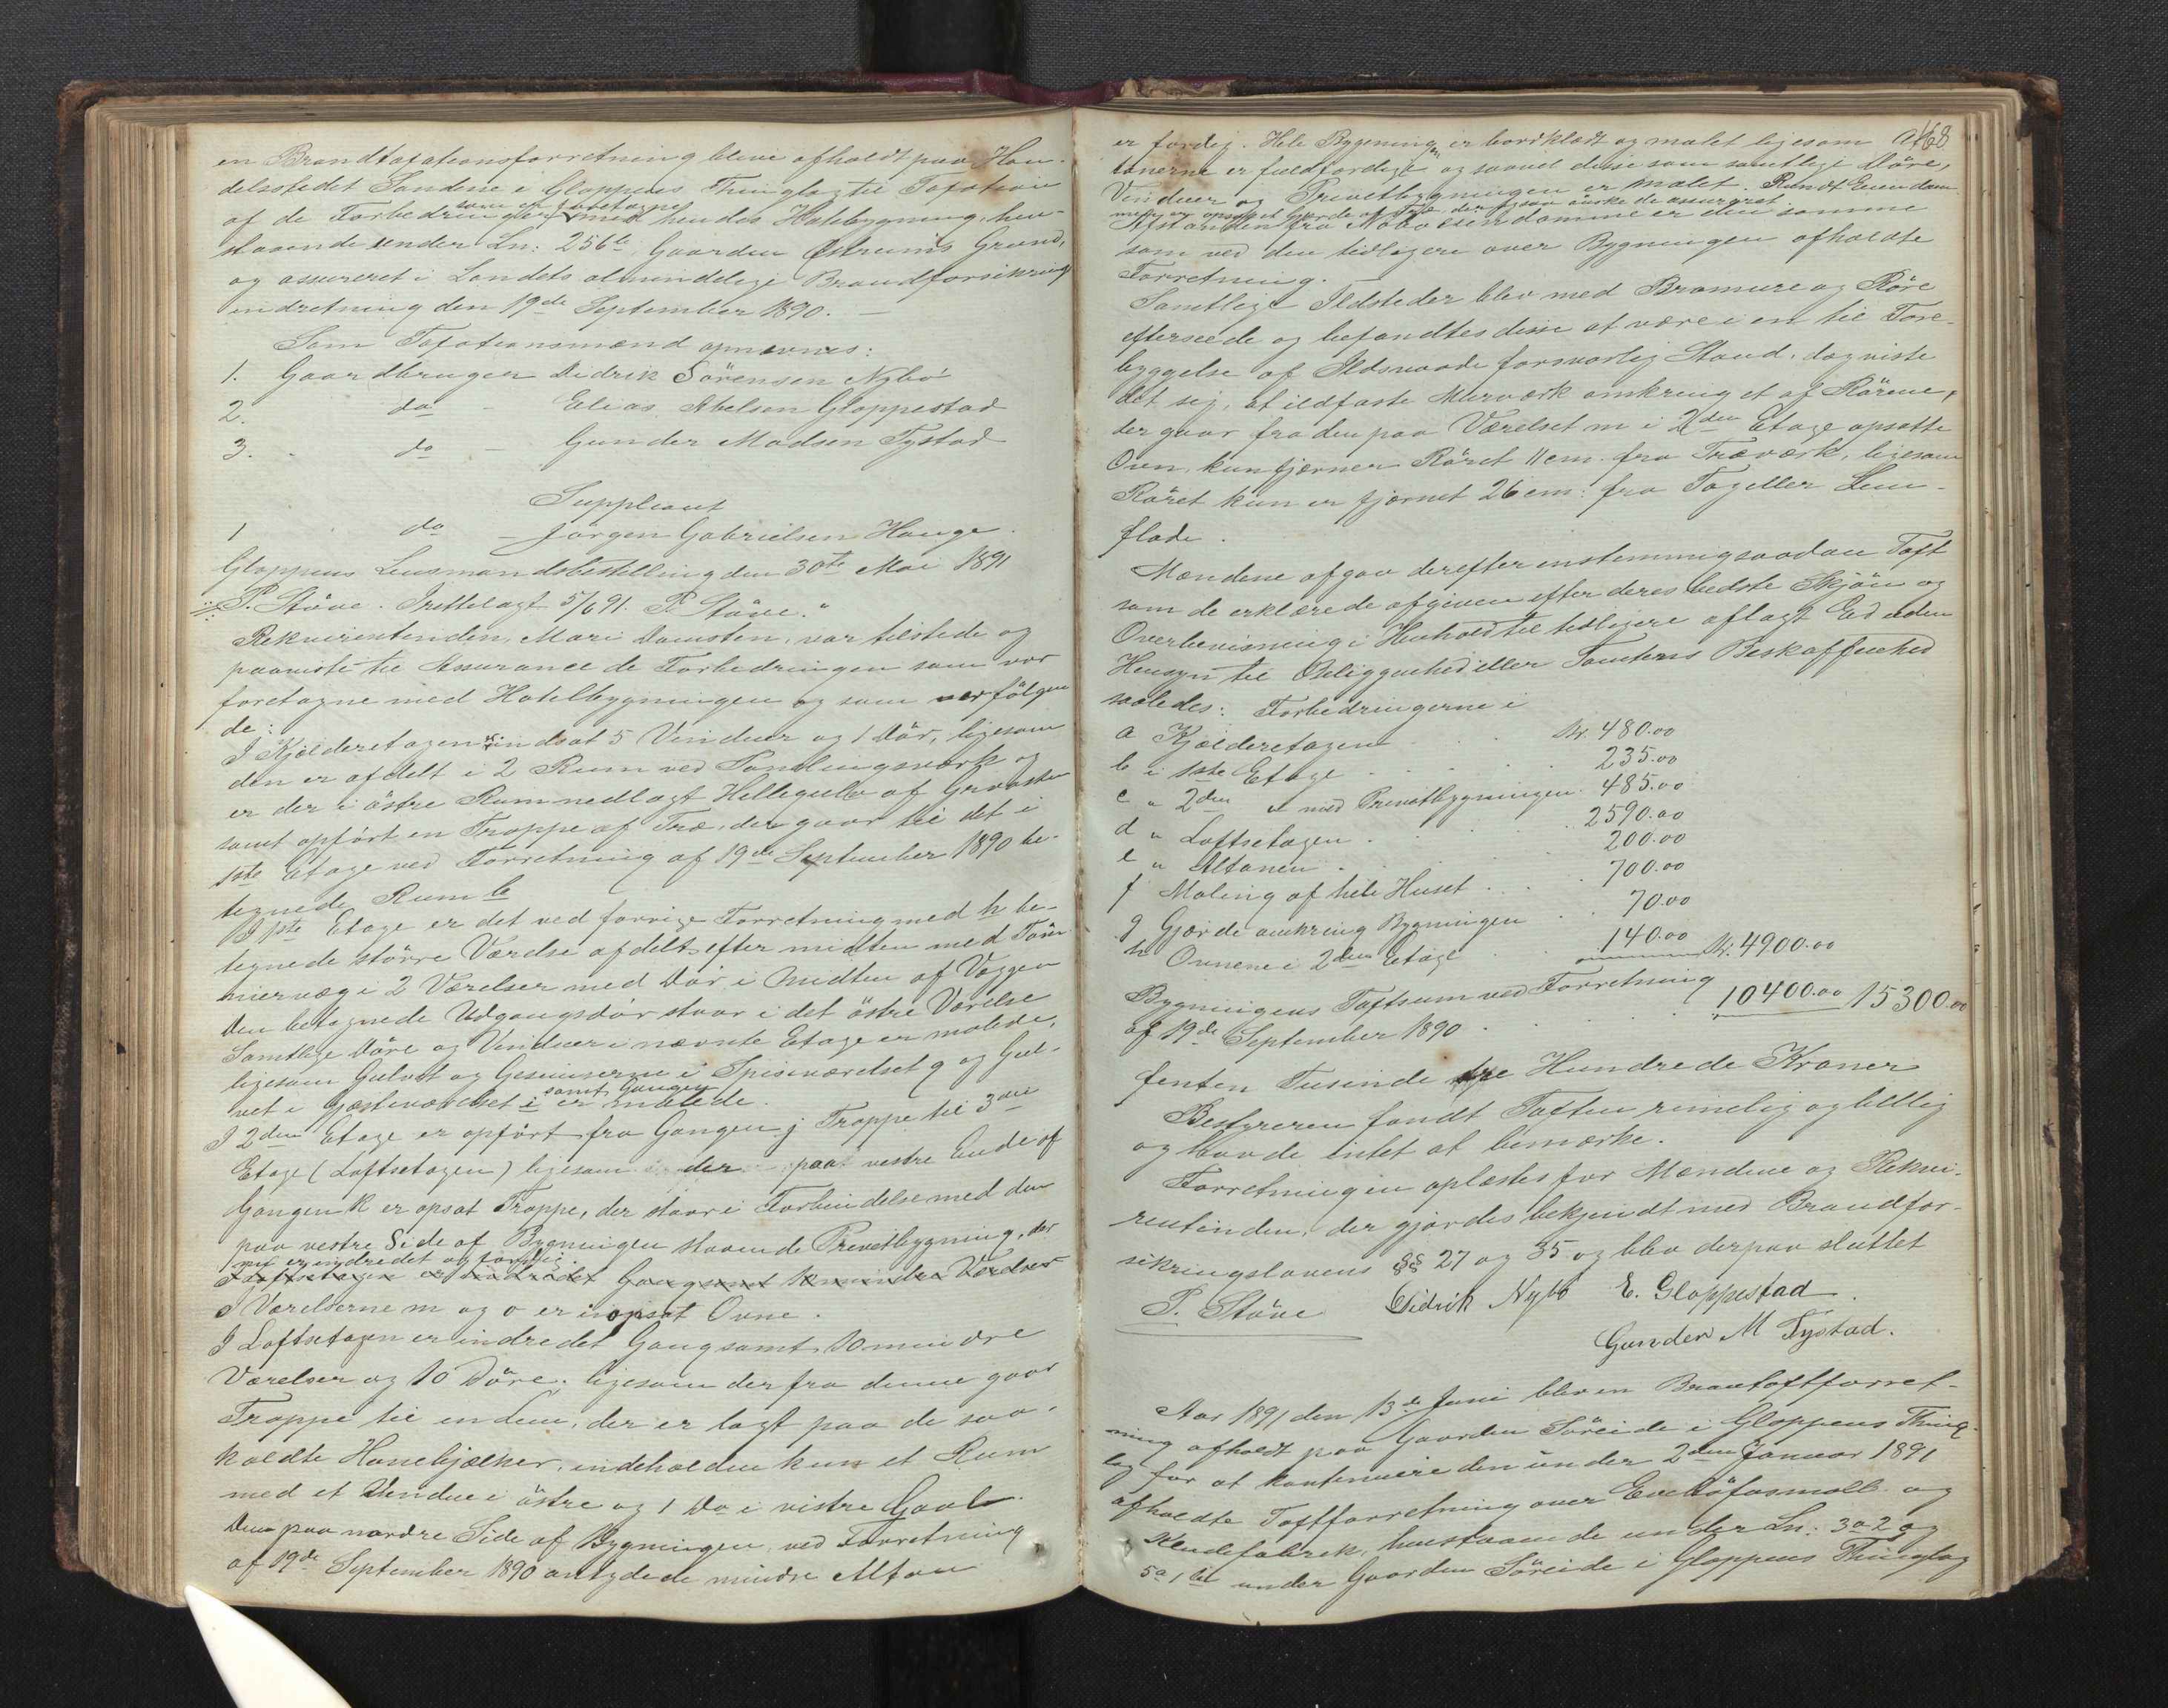 en Brandtaxationsforretning blive afholdt paa Han-
delsstedet Sandene i Gloppens Thinglag til Taxation
af de Forbedringer som er foretagne med hendes Hotelbygning, hen-
staaende under Ln: 256 Gaarden Østreims Grund,
og assureret i Landets almindelige Brandforsikrings
indretning den 19de September 1890. —
Som Taxationsmænd opnævnes:
1. Gaardbruger Didrik Sörensen Nybö
2. do - Elias Abelsen Gloppestad
3. do - Gunder Madsen Tystad
Suppleant
1 do - Jörgen Gabrielsen Hauge.
Gloppens Lensmandsbestilling den 30te Mai 1891
P. Støve. Irettelagt 5/6 91. P. Støve."
Rekvirentinden, Mari Damsten, var tilstede og
paaviste til Assurance de Forbedringer som var
foretagne med Hotelbygningen og som er fölgen
de:
I Kjælderetagen er indsat 5 Vinduer og 1 Dör, ligesom
den er afdelt i 2 Rum ved Samlingsværk og
er der i östre Rum nedlagt Hellegulv af Graasten
samt opfört en Trappe af Træ, der gaar til det i
1ste Etage ved Forretning af 19de September 1890 be-
tegnede Rum b
I 1ste Etage er det ved forrige Forretning med h be-
tegnede större Værelse afdelt efter midten med Töm
mervæg i 2 Værelser med Dör i Midten af Væggen
Den betegnede Udgangsdör staar i det östre Værelse
Samtlige Döre og Vinduer i nævnte Etage er malede,
ligesom Gulvet og Gesimserne i Spiseværelset g og Gul-
vet i Gjæsteværelset i samt Gangen er malede.
I 2den Etage er opfört fra Gangen j Trappe til 3die
Etage (Loftsetagen) ligesom der paa vestre Ende af
Gangen k er opsat Trappe, der staar i Forbindelse med den
paa vestre Side af Bygningen staaende Privetbygning, der
nu er indredet og færdig.
I Loftsetagen er indredet Gang samt 10 mindre Værelser
I Værelserne m og o er opsat Ovne.
I Loftsetagen er indredet Gang samt 10 mindre
Værelser og 10 Döre, ligesom der fra denne gaar
Trappe til en Lem, der er lagt paa de saa-
kaldte Hanebjælker, indeholden kun et Rum
med et Vindue i östre og 1 Do i vestre Gavl.
Den paa nordre Side af Bygningen, ved Forretning
af 19de September 1890 antydede mindre Altan
168
er færdig. Hele Bygningen er bordklædt og malet ligesom Al-
tanerne er fuldfærdige og saavel disse som samtlige Döre,
Vinduer og Privetbygningen er malet. Rundt Eiendom
men er opsat Gjærde af Træ, der ogsaa önskede assureret.
Afstanden fra Naboeiendomme er den samme
som ved den tidligere over Bygningen afholdte
Forretning.
Samtlige Ildsteder blev med Bramure og Röre
efterseede og befandtes disse at være i en til Fore-
byggelse af Ildsvaade forsvarlig Stand, dog viste
det sig, at ildfaste Murværk omkring et af Rörene,
der gaar fra den paa Værelset m i 2den Etage opsatte
Ovn, kun fjerner Röret 11 cm. fra Træværk, ligesom
Röret kun er fjernet 26 cm: fra Tag eller Lem-
flade.
Mændene afgav derefter enstemmig saadan Taxt
som de erklærede afgiven efter deres bedste Skjön og
Overbevisning i Henhold til tidligere aflagt Ed uden
Hensyn til Beliggenhed eller Tomtens Beskaffenhed
saaledes: Forbedringerne i
a Kjælderetagen . . . Kr. 480.00
b i 1ste Etage . . . 235.00
c " 2den " med Privetbygningen 485.00
d " Loftsetagen . . . 2590.00
e " Altanen . . . 200.00
f Maling af hele Huset . . 700.00
g Gjærde omkring Bygningen . . 70.00
h Ovnene i 2den Etage . . 140.00 Kr. 4900.00
Bygningens Taxtsum ved Forretning
af 19de September 1890 . . . 10400.00 15300.00
femten Tusinde tre Hundrede Kroner
Bestyreren fandt Taxten rimelig og billig
og havde intet at bemærke.
Forretningen oplæstes for Mændene og Rekvi-
rentinden, der gjordes bekjendt med Brandfor-
sikringslovens §§ 27 og 35 og blev derpaa sluttet
P. Støve Didrik Nybö E. Gloppestad.
Gunder M Tystad.
Aar 1891 den 13de Juni blev en Brantaxtforret-
ning afholdt paa Gaarden Söreide i Gloppens Thing-
lag for at kontinuere den under 2den Januar 1891
afholdte Taxtforretning over og
Klædefabrik, henstaaende under Ln: 3 a 2 og
5 a 1 under Gaarden Söreide i Gloppens Thinglag